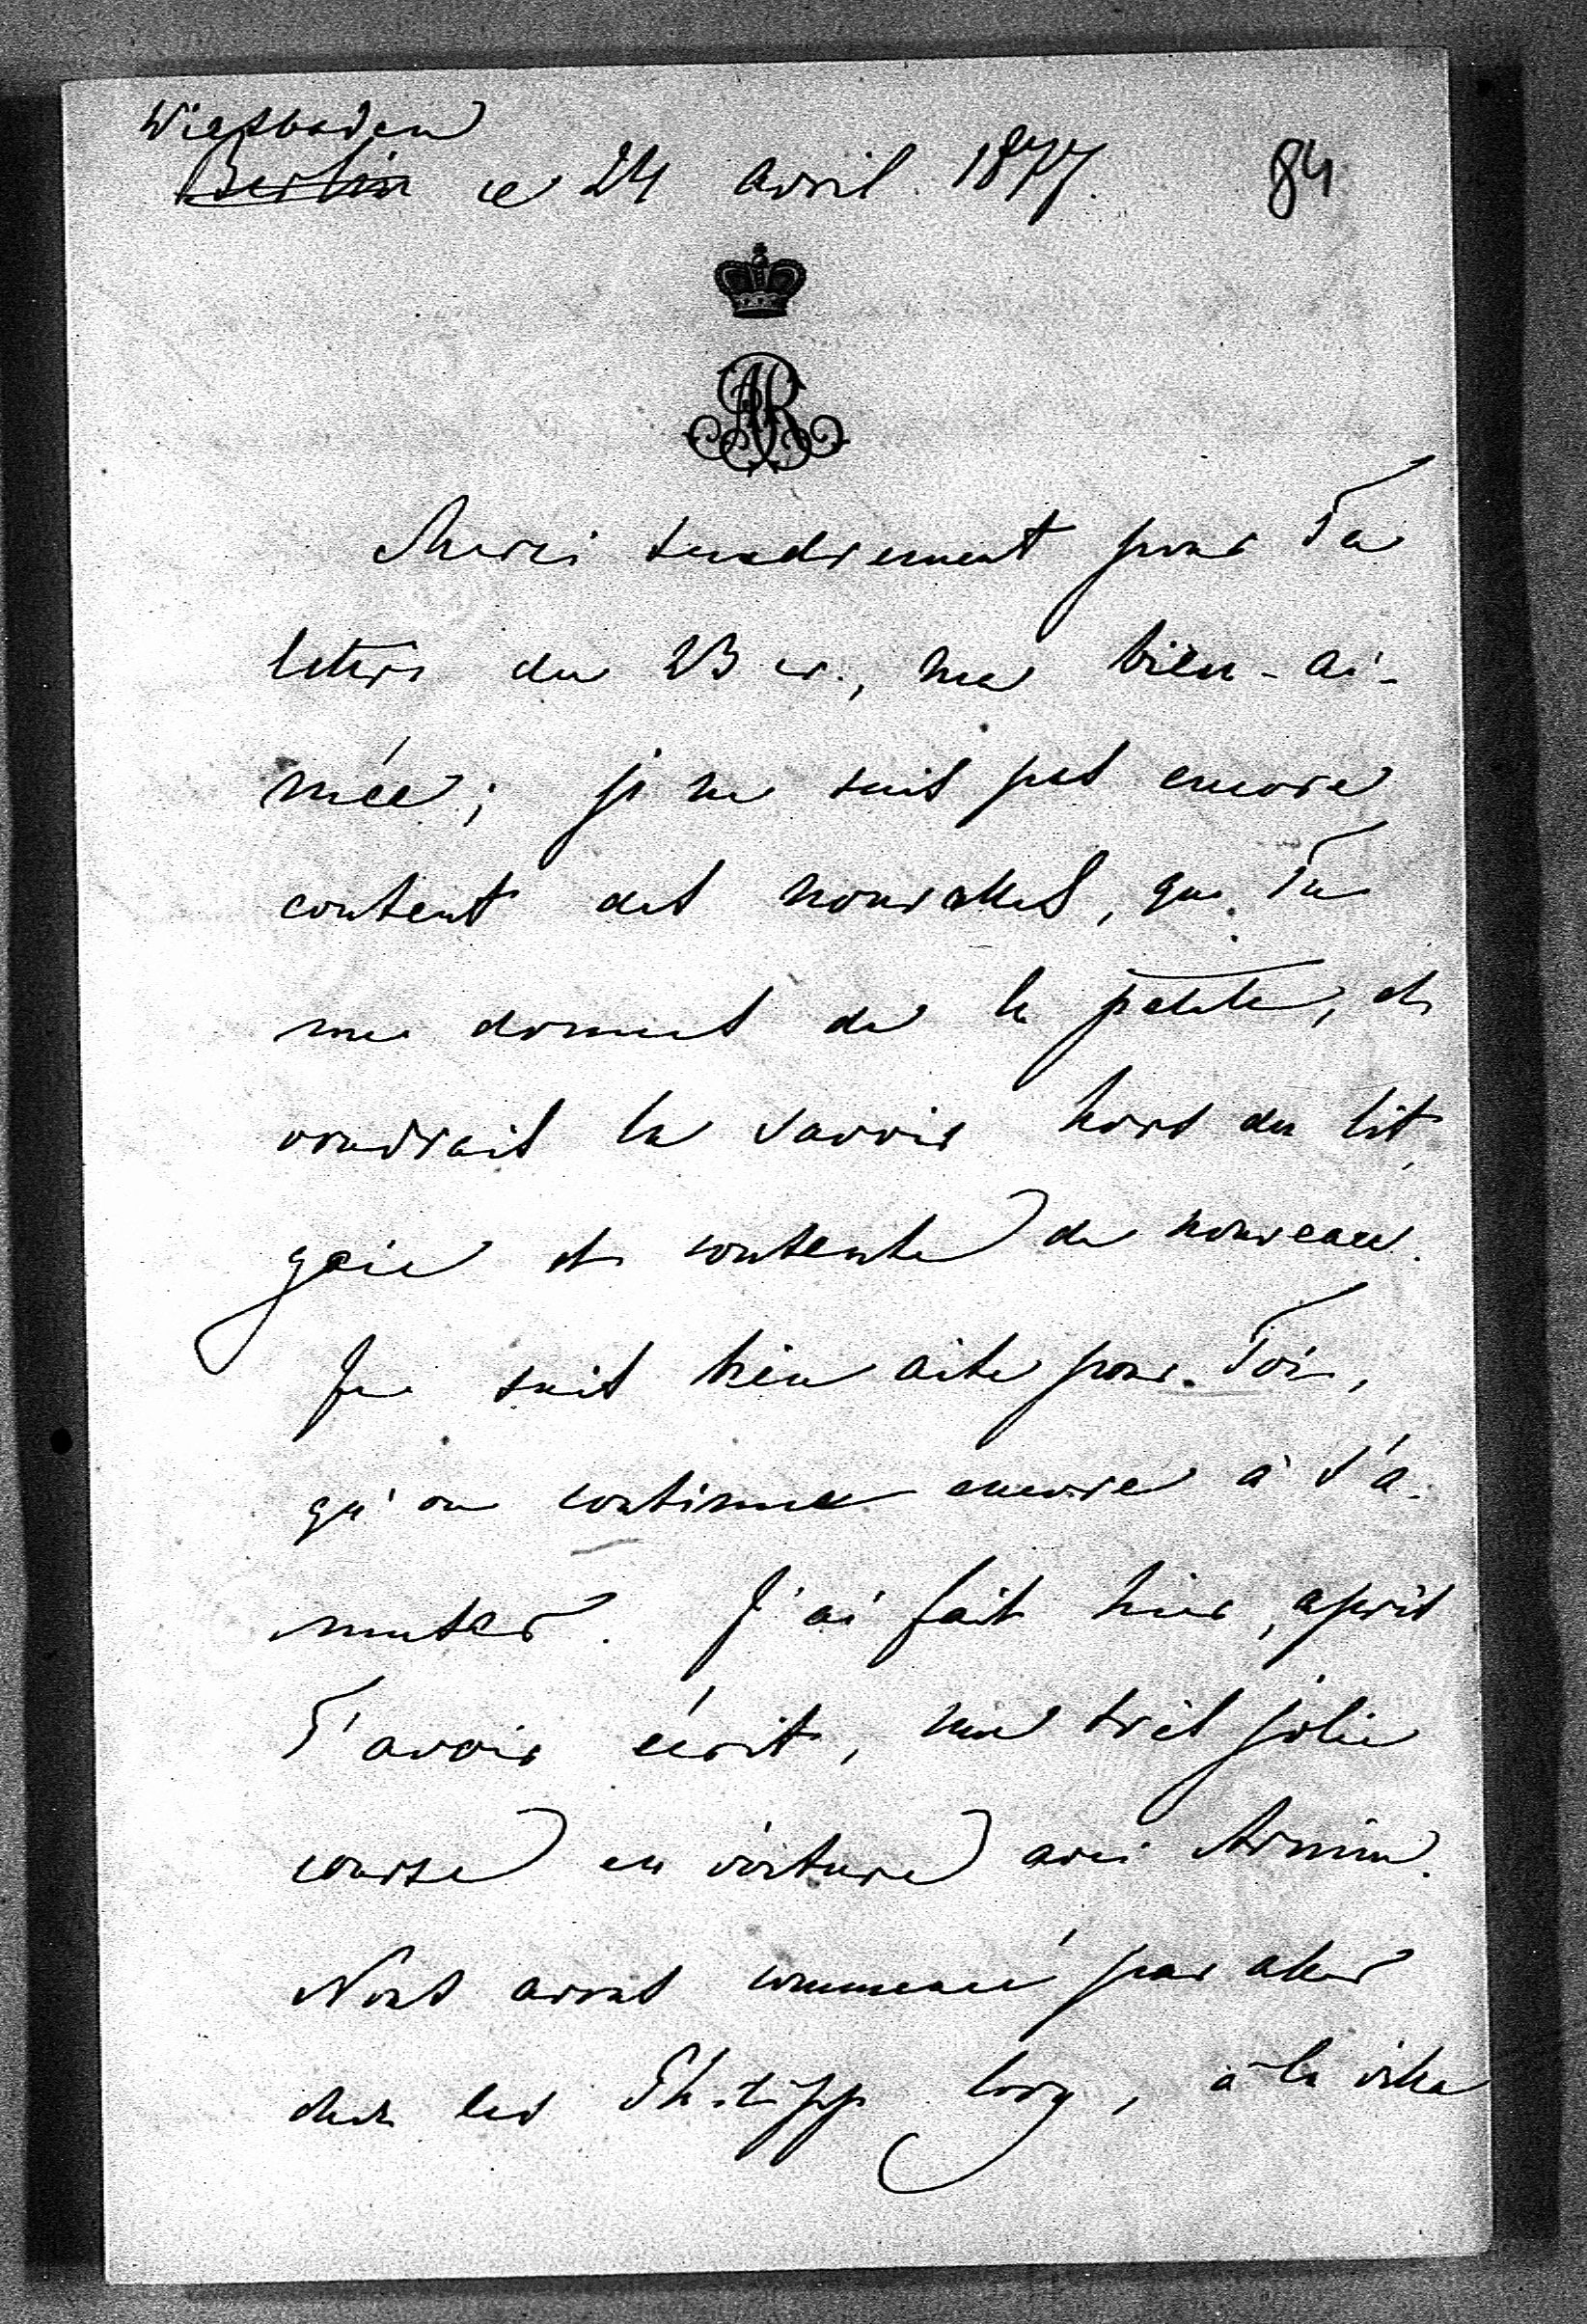 Wiesbaden
Berlin ce 24 avril 1877. 84
AR
Merci tendrement pour Ta
lettre du 23 cr., ma bien-ai-
mée; je ne suis pas encore
content des nouvelles, que Tu
me donnes de la petite, et
voudrais la savoir hors du lit,
gaie et contente de nouveau.
Je suis bien aise pour Toi,
qu'on continue encore à s'a-
muser. J'ai fait hier, après
T'avoir écrit, une très jolie
course en voiture avec Arnim.
Nous avons commencé par aller
chez les Philipp, à la villa